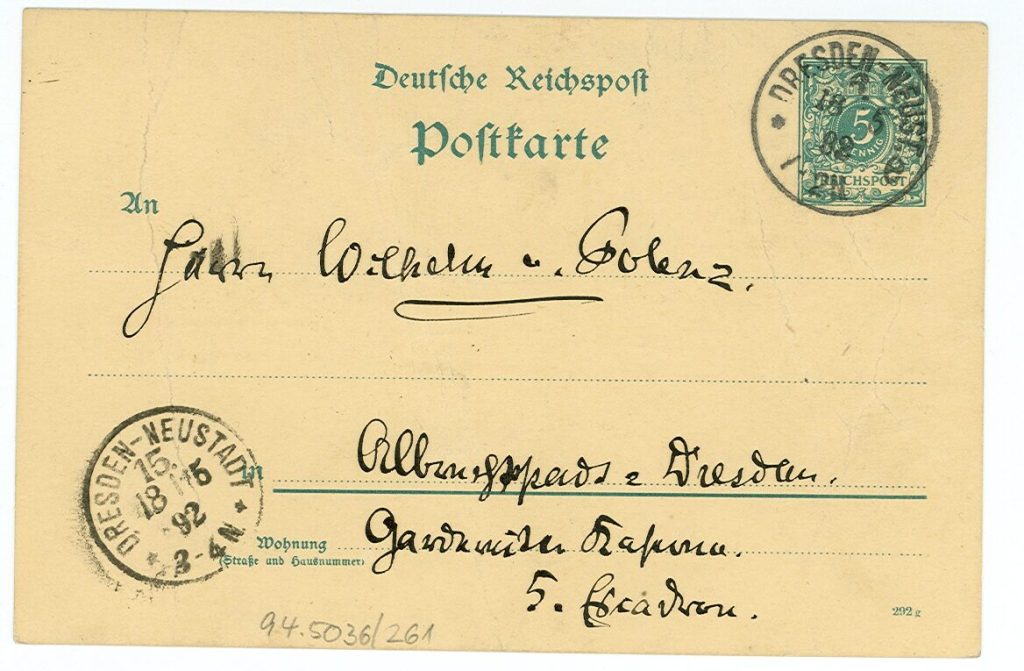 Deutsche Reichspost
Postkarte
DRESDEN-NEUST
18 5
92
1-2N
5
PFENNIG
REICHSPOST
An
Herrn Wilhelm v. Polenz.
DRESDEN-NEUSTADT
18
92
3-4N
in
Albrechtstadt = Dresden.
Wohnung
(Straße und Hausnummer)
Gardereiter Kaserne.
5. Escadron.
292 g
94.5036/261